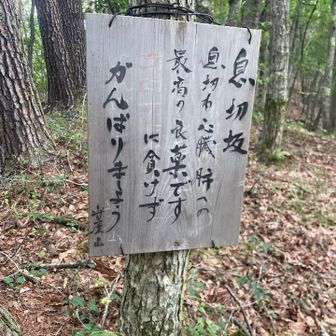 息切坂
息切れ心臓肝への
最高の良薬です
に負けず
がんばりましょう